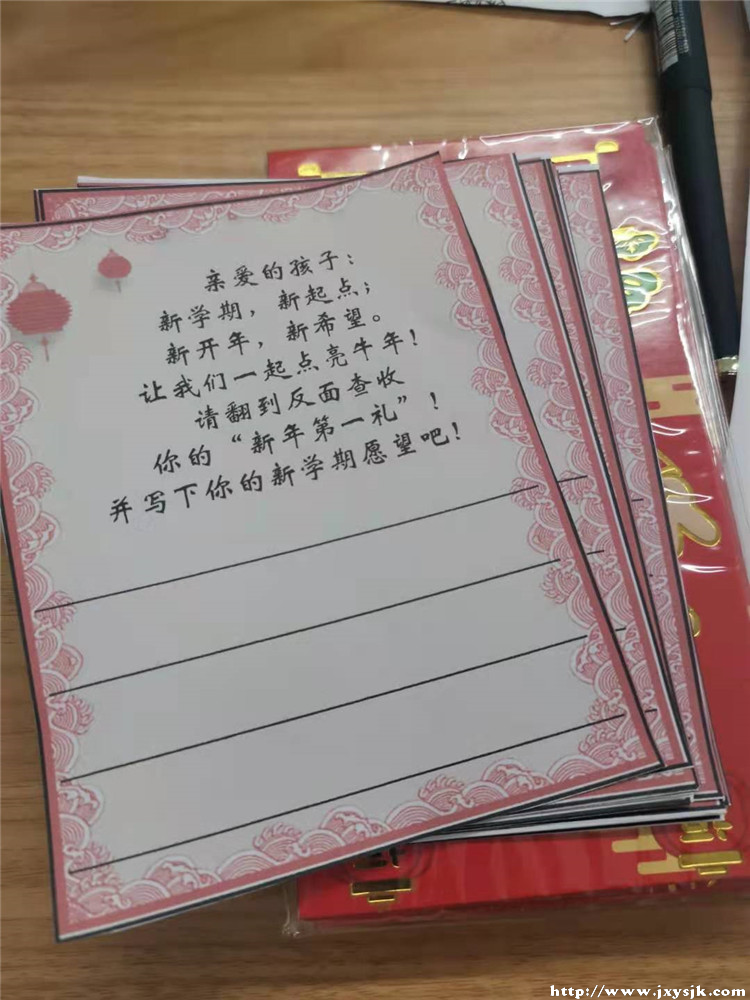 亲爱的孩子：
新学期，新起点；
新开年，新希望。
让我们一起点亮牛年！
请翻到反面查收
你的“新年第一礼”！
并写下你的新学期愿望吧！
http://www.jxysjk.com